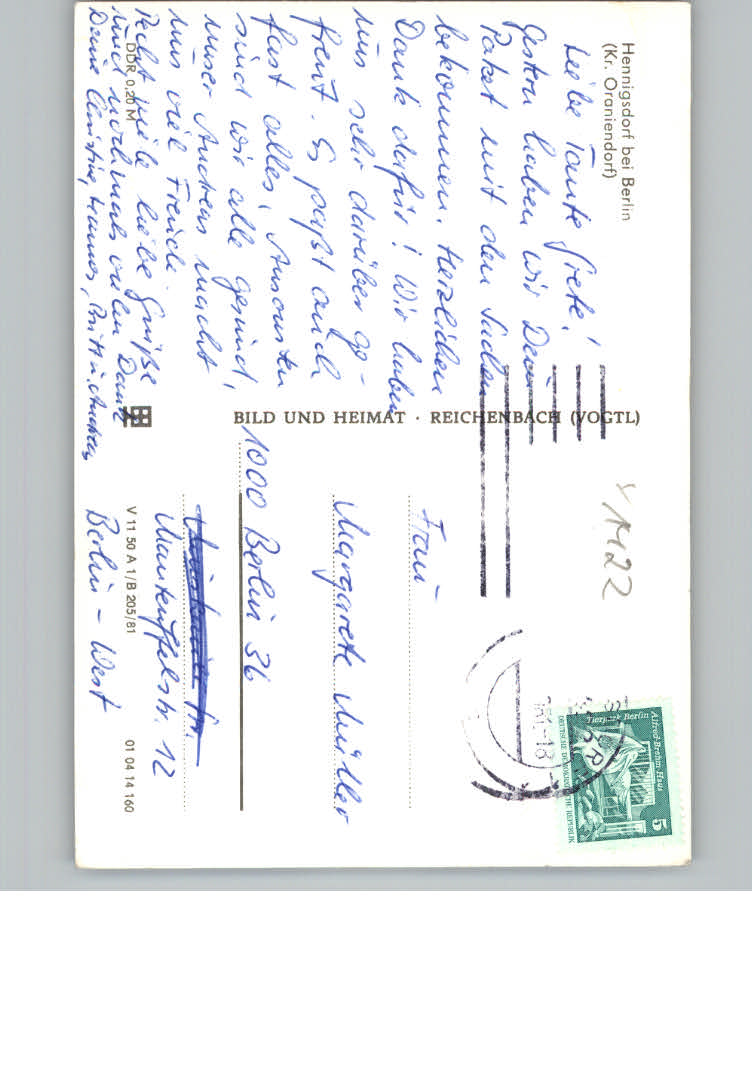 Hennigsdorf bei Berlin
(Kr. Oraniendorf)
Liebe Tante Grete!
Gestern haben wir Dein
Paket mit den Sachen
bekommen. Herzlichen
Dank dafür! Wir haben
uns sehr darüber ge-
freut. Es paßt auch
fast alles. Ansonsten
sind wir alle gesund!
unser Andreas macht
uns viel Freude.
Recht viele liebe Grüße
und nochmals vielen Dank
Deine Christine, Hannes, Britt u. Andreas
DDR 0,20 M
BILD UND HEIMAT · REICHENBACH (VOGTL)
V 11 50 A 1/B 205/81
01 04 14 160
Frau
Margarete Müller
1000 Berlin 36
Manteuffelstr. 12
Berlin - West
Alfred-Brehm-Haus
Tierpark Berlin
DEUTSCHE DEMOKRATISCHE REPUBLIK
5